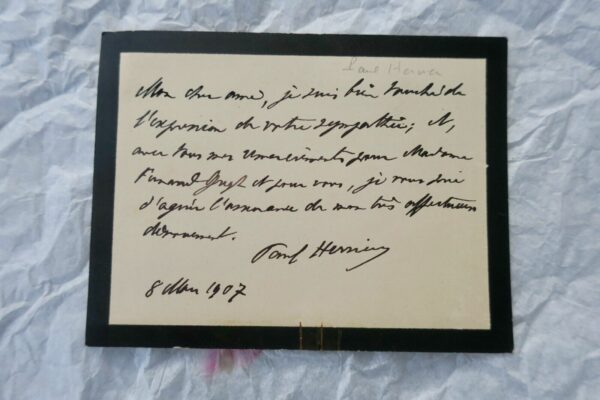 Paul Hervieu
Mon cher ami, je suis bien touché de
l'expression de votre sympathie; et,
avec tous mes remerciements pour Madame
Fernand Gregh et pour vous, je vous prie
d'agréer l'assurance de mon très affectueux
dévouement.
Paul Hervieu
8 Mars 1907